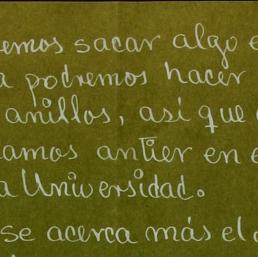 emos sacar algo e
a podremos hacer
anillos, así que
amos antier en e
a Universidad.
se acerca más el